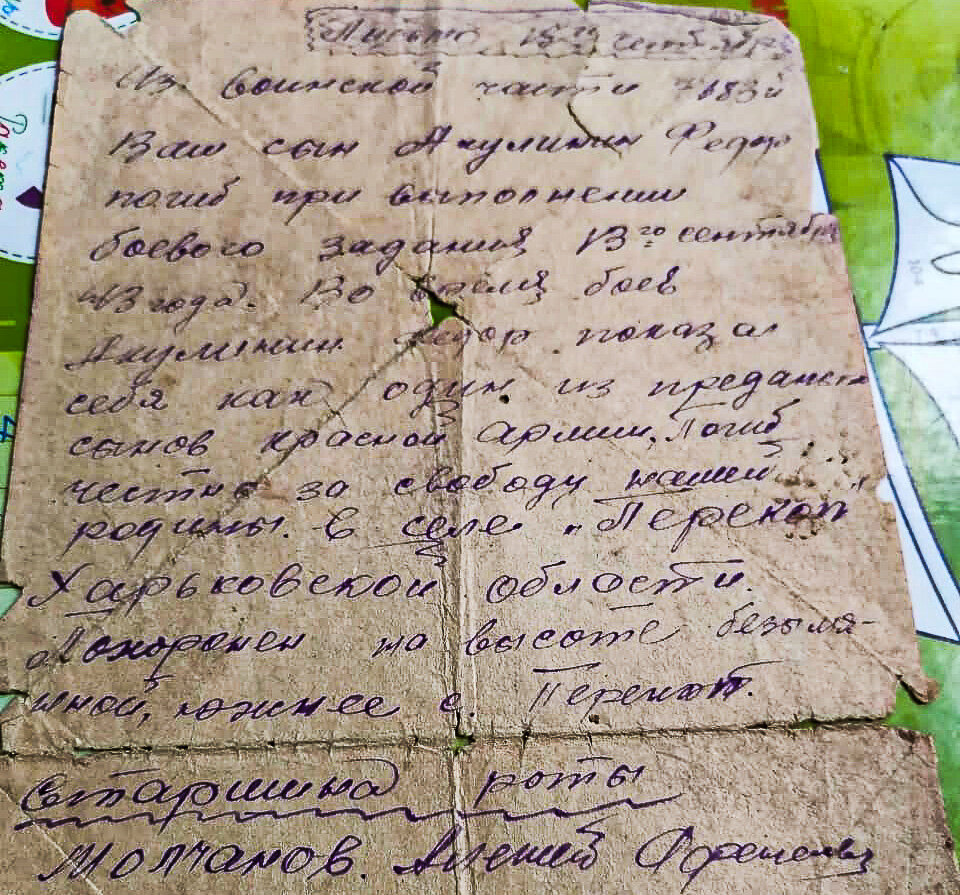 Письмо 15го сентября
Из воинской части 7183й
Ваш сын Акулинин Федор
погиб при выполнении
боевого задания 13го сентября
43 года. Во время боев
Акулинин Федор показал
себя как один из преданных
сынов красной армии, Погиб
честно за свободу нашей
родины. в селе „Перекоп"
Харьковской области.
Похоронен на высоте безымя-
нной, южнее с. Перекоп.
Старшина роты
Молчанов. Алексей